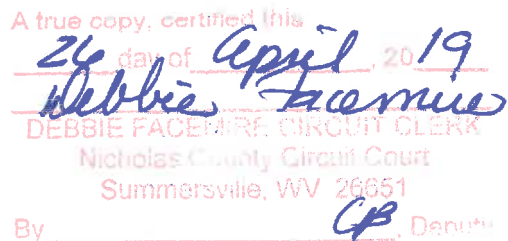 A true copy, certified this
26 day of April, 2019
Debbie Facemire
DEBBIE FACEMIRE CIRCUIT CLERK
Nicholas County Circuit Court
Summersville, WV 26651
By CB, Deputy